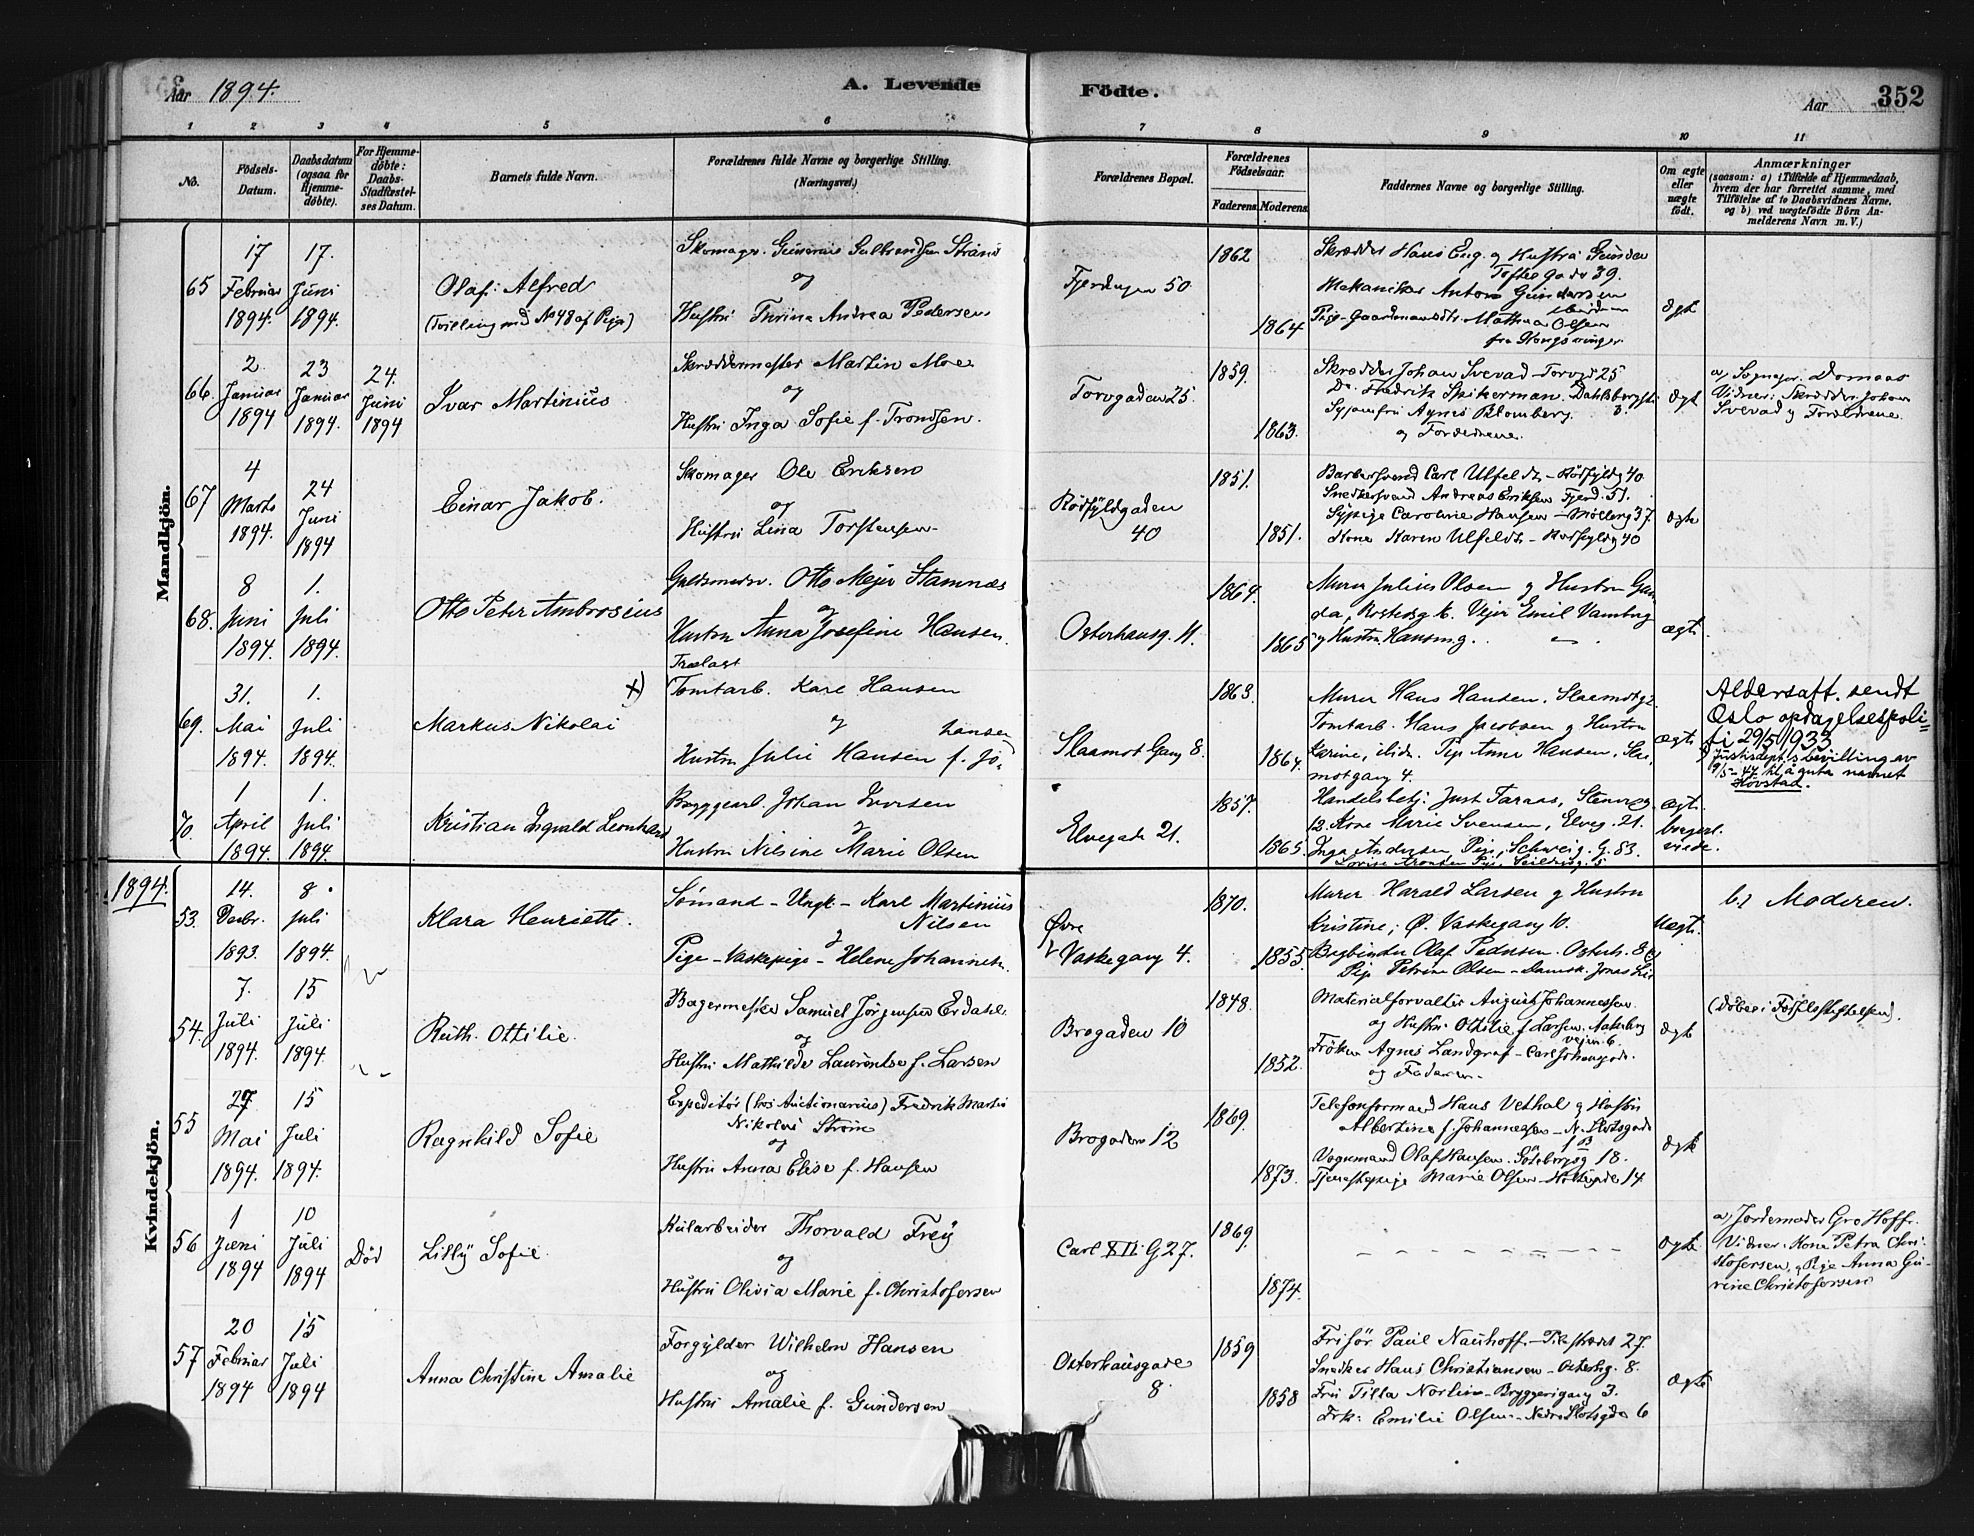 Aar 1894.
A. Levende Födte.
Aar 352
1 2 3 4 5 6 7 8 9 10 11
No.
Födsels-
Datum.
Daabsdatum
(ogsaa for
Hjemme-
döbte).
For Hjemme-
döbte:
Daabs-
Stadfæstel-
ses Datum.
Barnets fulde Navn.
Forældrenes fulde Navne og borgerlige Stilling.
(Næringsvei.)
Forældrenes Bopæl.
Forældrenes
Födselsaar.
Faderens. Moderens.
Faddernes Navne og borgerlige Stilling.
Om ægte
eller
uægte
födt.
Anmærkninger
(saasom: a) i Tilfælde af Hjemmedaab,
hvem der har forrettet samme, med
Tilföielse af to Daabsvidners Navne,
og b) ved uægtefödte Börn An-
melderens Navn m. V.)
Mandkjön.
65
17
Februar
1894.
17.
Juni
1894.
Olaf Alfred
(Tvilling med No 48 af Piger)
Skomager Gulbrandsen Strand
og
Hustru Turina Andrea Pedersen
Fjerdingen 50
1862
1864
Skrædder Hans Eng og Hustru
Toftes Gade 39.
Mekaniker Anton Gundersen
Mathea Olsen
fra Kongsvinger
ægte
66.
2.
Januar
1894
23
Januar
1894.
24.
Juni
1894
Ivar Martinius
Skræddermester Martin Moe
og
Hustru Inga Sofie f. Trondsen.
Torvgaden 25.
1859.
1863.
Skrædder Johan Svevad Torvgd 25
Do. Fredrik Spikerman.
Syjomfru Agnes Blomberg.
og Forældrene.
ægte
Vidner: Skrædder Johan
Svevad og Forældrene.
67
4
Marts
1894.
24
Juni
1894
Einar Jakob.
Skomager Ole Eriksen
og
Hustru Lina Torstensen
Rödfyldgaden
40
1851.
1851.
Barbersvend Carl Ulfeldt - Rödfyldg 40
Snedkersvend Andreas Eriksen Fjerd. 51.
Sypige Caroline Hansen - Möllerg 37.
Kone Karen Ulfeldt - Rödfyldg 40
ægte
68.
8
Juni
1894.
1.
Juli
1894.
Otto Peter Ambrosius
Guldsmedsv. Otto Mejer Stamnæs
og
Hustru Anna Josefine Hansen.
Osterhausg. 11.
1864.
1865
Murer Julius Olsen og Hustru Gun-
da, Vejer Emil Vamberg
og Hustru
ægte
69.
31.
Mai
1894.
1.
Juli
1894.
Markus Nikolai
x)
Trælast
Tomtarb. Karl Hansen
og
Hustru Julie Hansen f. Jo-
hansen
Slaamot Gang 8.
1863
1864.
Murer Hans Hansen, Slaamotg 2
Tomtarb. Hans Jacobsen og Hustru
Karine, ibid. Pige Anna Hansen, Slaa-
motgang 4.
ægte
Aldersatt. sendt
Oslo opdagelsespoli-
ti 29/5 1933
Justisdept.'s bevilling av
9/5-44 til å anta navnet
Hovstad.
70.
1
April
1894.
1.
Juli
1894.
Kristian Ingvald Leonhard
Byggearb. Johan Iversen
og
Hustru Nilsine Marie Olsen
Elvegade 21.
1857.
1865.
Handelsbetj. Just Faraas, Stenersg.
12. Kone Marie Svensen, Elveg. 21.
Inga Andersen, Pige, Schweig. G. 83.
ægte.
borgerl.
viede.
1894.
Kvindekjön.
53.
14.
Decbr.
1893.
8
Juli
1894.
Klara Henriette.
Sömand - Ungk - Karl Martinius
Nilsen
og
Pige - Vaskepige - Helene Johannes.
Övre
Vaskegang 4.
1870.
1855.
Murer Harald Larsen og Hustru
Kristine, Ö. Vaskegang 10.
Bogbinder Olaf Pedersen - Osterh. 8
Pige Petrine Olsen
Uægte.
b.) Moderen.
54.
7.
Juli
1894.
15
Juli
1894.
Ruth Ottilie
Bagermester Samuel Jörgensen Erdahl
og
Hustru Mathilde Laurentse f. Larsen
Brogaden 10
1848.
1852.
Materialforvalter August Johannessen
og Hustru Ottilie f. Larsen. Aakeberg
vejen 6.
Fröken Agnes Landgraf - Carl Johansgade.
og Faderen.
ægte
(Döbt i Födselsstiftelsen).
55
27
Mai
1894.
15
Juli
1894.
Ragnhild Sofie
Expeditör (hos Auctionarius) Fredrik Martin
Nikolai Ström
og
Hustru Anna Elise f. Hansen
Brogaden 12
1869.
1873.
Telefonformand Hans Vethal og Hustru
Albertine f. Johannessen - N. Slotsgade
Vognmand Olaf Hansen. Göteborgg 18.
Tjenestepige Marie Olsen 14
ægte
56
1
Juni
1894
10
Juli
1894
Död
Lilly Sofie
Kularbeider Thorvald Frey
og
Hustru Olivia Marie f. Christofersen
Carl XII G 27.
1869.
1874.
ægte
a) Jordemoder Gro Hoff.
Vidner: Kone Petra Chri-
stofersen, og Pige Anna Gu-
rine Christofersen
57
20
Februar
1894
15
Juli
1894
Anna Christine Amalie
Forgylder Wilhelm Hansen
og
Hustru Amalie f. Gundersen
Osterhausgade
8.
1859
1858
Frisör Paul Nauhoff - Pilestrædet 27.
Snedker Hans Christiansen - Osterhg. 8.
Fru Tilla Norlin - Bryggerigang 3.
Frk: Emilie Olsen - Nedre Slotsgade 6
ægte